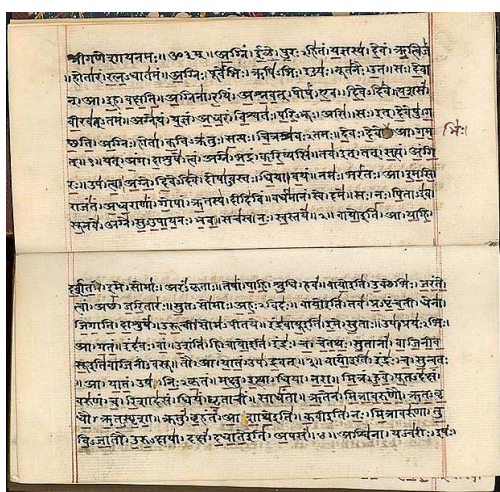 श्रीगणेशायनमः॥ॐ३म्॥अग्निं।ईळे।पुरःऽहितं।यज्ञस्य।देवं।ऋत्विजं
॥होतारं।रत्नऽधातमं॥अग्निः।पूर्वेभिः।ऋषिऽभिः।ईड्यः।नूतनैः।उत॥सः।देवा
न्।आ।इह।वक्षति॥अग्निना।रयिं।अश्नवत्।पोषं।एव।दिवेऽदिवे॥यशसं।
वीरवत्ऽतमं॥अग्ने।यं।यज्ञं।अध्वरं।विश्वतः।परिऽभूः।असि॥सः।इत्।देवेषु।ग
च्छति॥अग्निः।होता।कविऽक्रतुः।सत्यः।चित्रश्रवःऽतमः॥देवः।देवे।आ।गम
भिः।
त्॥१॥यत्।अंग।दाशुषे।त्वं।अग्ने।भद्रं।करिष्यसि॥तव।इत्।तत्।सत्यं।अंगि
रः॥उप।त्वा।अग्ने।दिवेऽदिवे।दोषाऽवस्तः।धिया।वयं॥नमः।भरंतः।आ।इमसि॥
राजंतं।अध्वराणां।गोपां।ऋतस्य।दीदिविं॥वर्धमानं।स्वे।दमे॥सः।नः।पिताऽइव।
सूनवे।अग्ने।सुऽउपायनः।भव॥सचस्व।नः।स्वस्तये॥२॥वायोइति।आ।याहि।
दर्शत।इमे।सोमाः।अरंऽकृताः॥तेषां।पाहि।श्रुधि।हवं॥वायोइति।उक्थेभिः।जरंते।
त्वां।अच्छ।जरितारः॥सुतऽसोमाः।अहःऽविदः॥वायोइति।तव।प्रऽपृंचती।धेना।
जिगाति।दाशुषे॥उरूची।सोमऽपीतये॥इंद्रवायूइति।इमे।सुताः॥उप।प्रयःऽभिः।
आ।गतं॥इंदवः।वां।उशंति।हि॥वायोइति।इंद्रः।च।चेतथः।सुतानां।वाजिनीव
सूइतिवाजिनीऽवसू॥तौ।आ।यातं।उप।द्रवत्॥३॥वायोइति।इंद्रः।च।सुन्वतः
॥आ।यातं।उप।निःऽकृतं॥मक्षु।इत्था।धिया।नरा॥मित्रं।हुवे।पूतऽदक्षं।
वरुणं।च।रिशादसं॥धियं।घृताचीं।साधंता॥ऋतेन।मित्रावरुणौ।ऋतऽवृ
धौ।ऋतऽस्पृशा॥क्रतुं।बृहंतं।आशाथेइति॥कवीइति।नः।मित्रावरुणा।तु
विऽजातौ।उरुऽक्षया॥दक्षं।दधातेइति।अपसं॥४॥अश्विना।यज्वरीः।इषः।